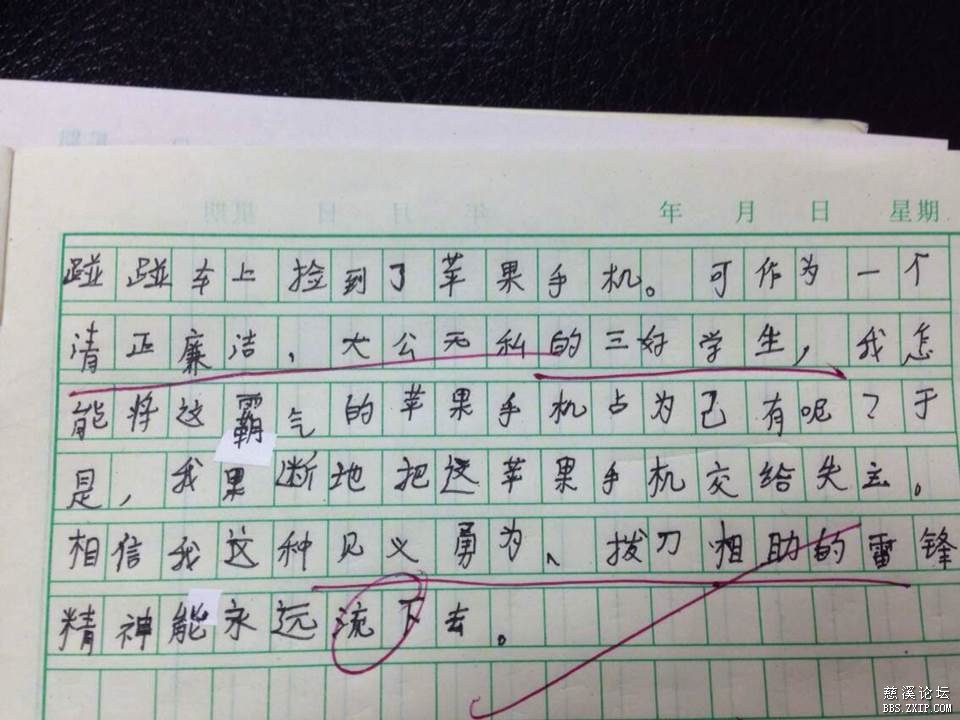 年 月 日 星期
碰碰车上捡到了苹果手机。可作为一个
清正廉洁、大公无私的三好学生，我怎
能将这霸气的苹果手机占为己有呢？于
是，我果断地把这苹果手机交给失主。
相信我这种见义勇为、拔刀相助的雷锋
精神能永远流下去。
慈溪论坛
BBS.ZXIP.COM